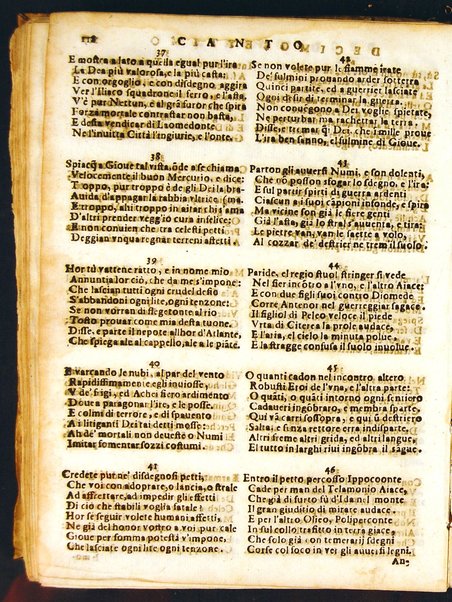 118 CANTO
37
E mostra a lato a quella egual pur l'ira
La Dea più valorosa, e la più casta:
E con orgoglio, e con disdegno aggira
Ver l'Iliaco squadrone il ferro, e l'asta,
V'è pur Nettun, e al grã furor che spira
Forza mortale contrastar non basta,
E desta vendicar di Laomedonte
Ne l'inuitta Città l'ingiurie, e l'onte.
38
Spiacq̃ a Gioue tal vista, õde a se chiama
Velocemente il buon Mercurio, e dice:
Troppo, pur troppo è de gli Dei la brama
Auida d'appagar la rabbia vltrice:
E troppo, altri troppo in aitar chi ama
D'altri prender veggio cura infelice;
E non conuien che tra celesti petti
Deggian vnqua regnar terreni affetti.
39
Hor tù vattene ratto, e in nome mio
Annuntia lor ciò, che da me s'impone:
Che lascian tutti ogni crudel desio
S'abbandoni ogni lite, ogni tenzone:
Se non vorran disdegetonte al rio
Tosto prouar come mia destra tuone.
Disse, e parte il nepote all'hor d'Atlante
Che spiega ale al cappello, ale a le piãte.
40
E varcando le nubi, al par del vento
Rapidissimamente egli inuiosse,
V' de' frigi, ed Achei fiero ardimento
Deuea paragonar l'ire, e le posse.
E colmi di terrore, e di spauento
A i litiganti Dei tai detti mosse:
Ah de' mortali non deueste o Numi
Imitar fomentar sozzi costumi.
41
Credete pur ne' disdegnosi petti,
Che voi con adoprar, o lancia, o strale
Ad affrettar, ad impedir gli effetti
Di ciò che stabilì voglia fatale?
Hor se seguir volete humani affetti,
Ne già del honor vostro a voi pur cale
Gioue per somma potestà v'impone,
Che lasciate ogni lite ogni tenzone.
42
Se non volete pur le fiamme irate
De' fulmini prouando arder sotterra
Quinci partite, ed a guerrier lasciate
Ogni desir di terminar la guerra.
Non conuengono a Dei voglie spietate,
Ne perturbar ma rachettar la terra.
Disse, e tremar q̃ Dei che i mille proue
L'ira ben sanno, el fulmine di Gioue.
43
Parton gli auuersi Numi, e son dolenti,
Che nõ posson sfogar lo sdegno, e l'ira:
E sul partir spirti di guerra ardenti
Ciascun a i suoi cãpioni infonde, e spira
Ma vicine son già le fiere genti
Già l'asta, già lo stral s'auuenta, e tira,
Le pietre van, van le saette a volo,
Al cozzar de' destrier ne trem il suolo.
44
Paride, el regio stuol stringer si vede
Nel fier incõtro a l'vno, e l'altro Aiace:
E con duo figli suoi contro Diomede
Corte Antenor nel guerreggiar sagace.
Il figliol di Peleo veloce il piede
Vrta di Citerea la prole audace,
E l'aria, el cielo la minuta polue.
E la strage confusa il suolo inuolue.
45
O quanti cadon nel incontro altero
Robusti Eroi de l'vna, e l'altra parte.
O quãti, o quãti intorno ogni sentiero
Cadaueri ingõbraro, e membra sparte.
Qui vãcarri sossopra, e qui il destriero
Salta, e sinza rettore erra indisparte.
Altri freme altri grida, ed altri langue,
E l tutto in larghi riui ingõbra il sãgue.
46
Entro il petto percosso Ippocoonte
Cade per man del Telamonio Aiace,
Che già di furto sù d'Ida nel monte
Il gran giuditio di mirate audace.
E per l'altro Oileo, Poliperconte
In sul collo trafitto in terra giace
Che solo già con temerarij sdegni
Corse col foco in ver gli auuersi legni.
An-